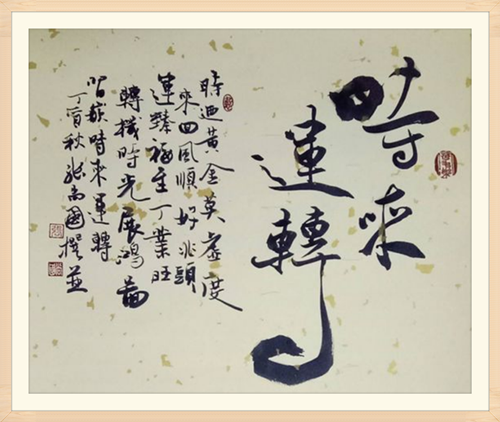 時來
運轉
時黃金莫虛度
來四風順好兆頭
運臻福至丁業旺
轉機時光展鴻圖
嵌時來運轉
丁酉秋尚國撰並